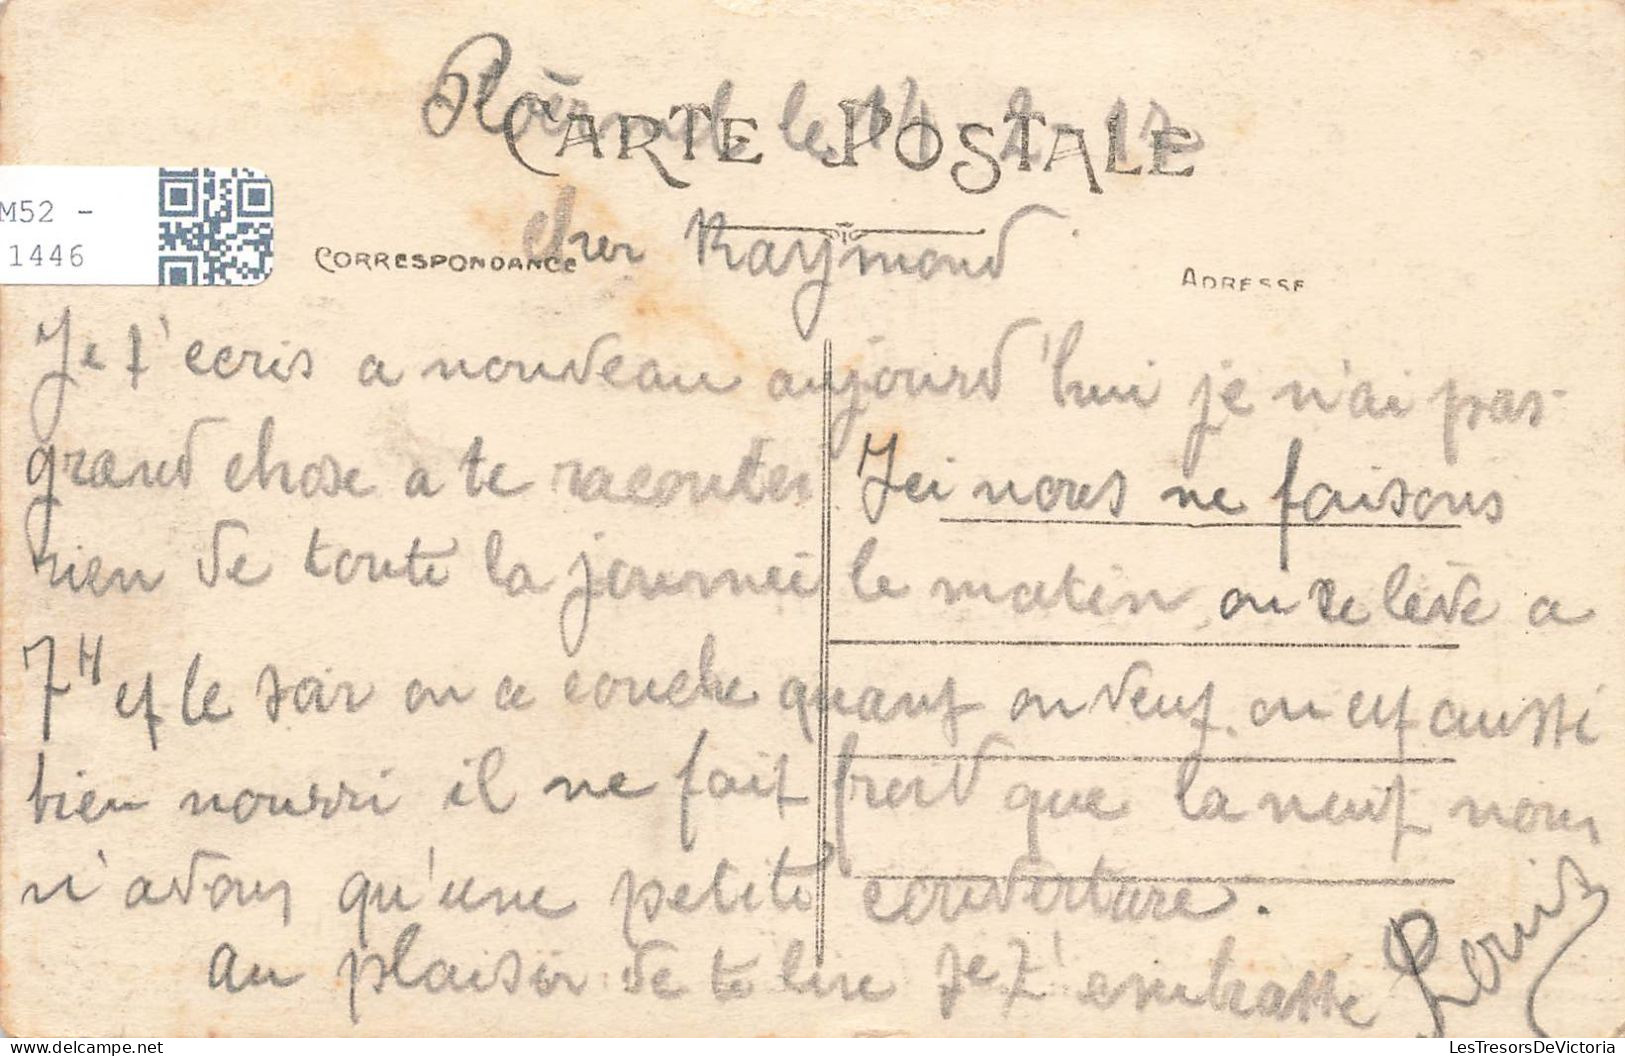 le 14 - 2 - 17
CARTE POSTALE
M52 -
1446
cher Raymond
CORRESPONDANCE
ADRESSE
Je t'ecris a nouveau aujourd'hui je n'ai pas
grand chose a te raconter Ici nous ne faisons
rien de toute la journeé le matin on se lève a
7H et le soir on ce couche quant on veut on est aussi
bien nourri il ne fait froid que la nuit nous
n'avons qu'une petite couverture.
au plaisir de te lire Je t'embrasse
Louis
LesTresorsDeVictoria